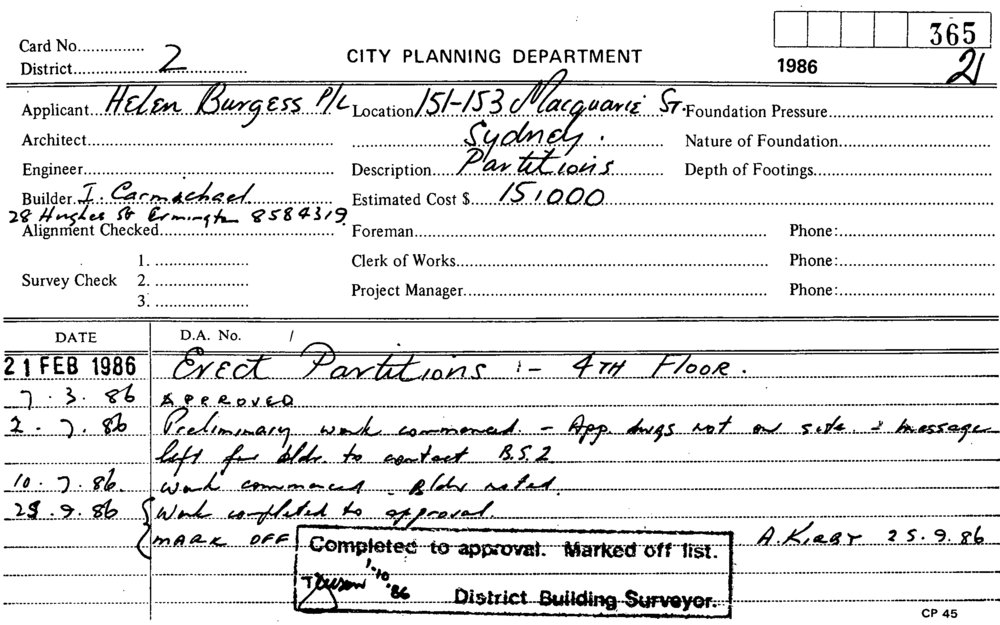 365
Card No...............
CITY PLANNING DEPARTMENT
District 2
1986
21
Applicant Helen Burgess P/L Location 151-153 Macquarie St. Foundation Pressure
Architect Sydney. Nature of Foundation
Engineer Description Partitions Depth of Footings
Builder I. Carmachael Estimated Cost $ 15,000
28 Hughes St Ermington 8584319
Alignment Checked Foreman Phone:
Survey Check
1. Clerk of Works Phone:
2.
3. Project Manager Phone:
DATE D.A. No. /
21 FEB 1986 Erect Partitions :- 4TH FLOOR.
7.3.86 APPROVED
2.7.86 Preliminary work commenced - App. dwgs not on site - message
left for bldr. to contact B.S.2
10.7.86. Work commenced - Bldr noted.
25.9.86 Work completed to approval.
MARK OFF A. KIRBY 25.9.86
Completed to approval. Marked off list.
1.10.86
District Building Surveyor.
CP 45